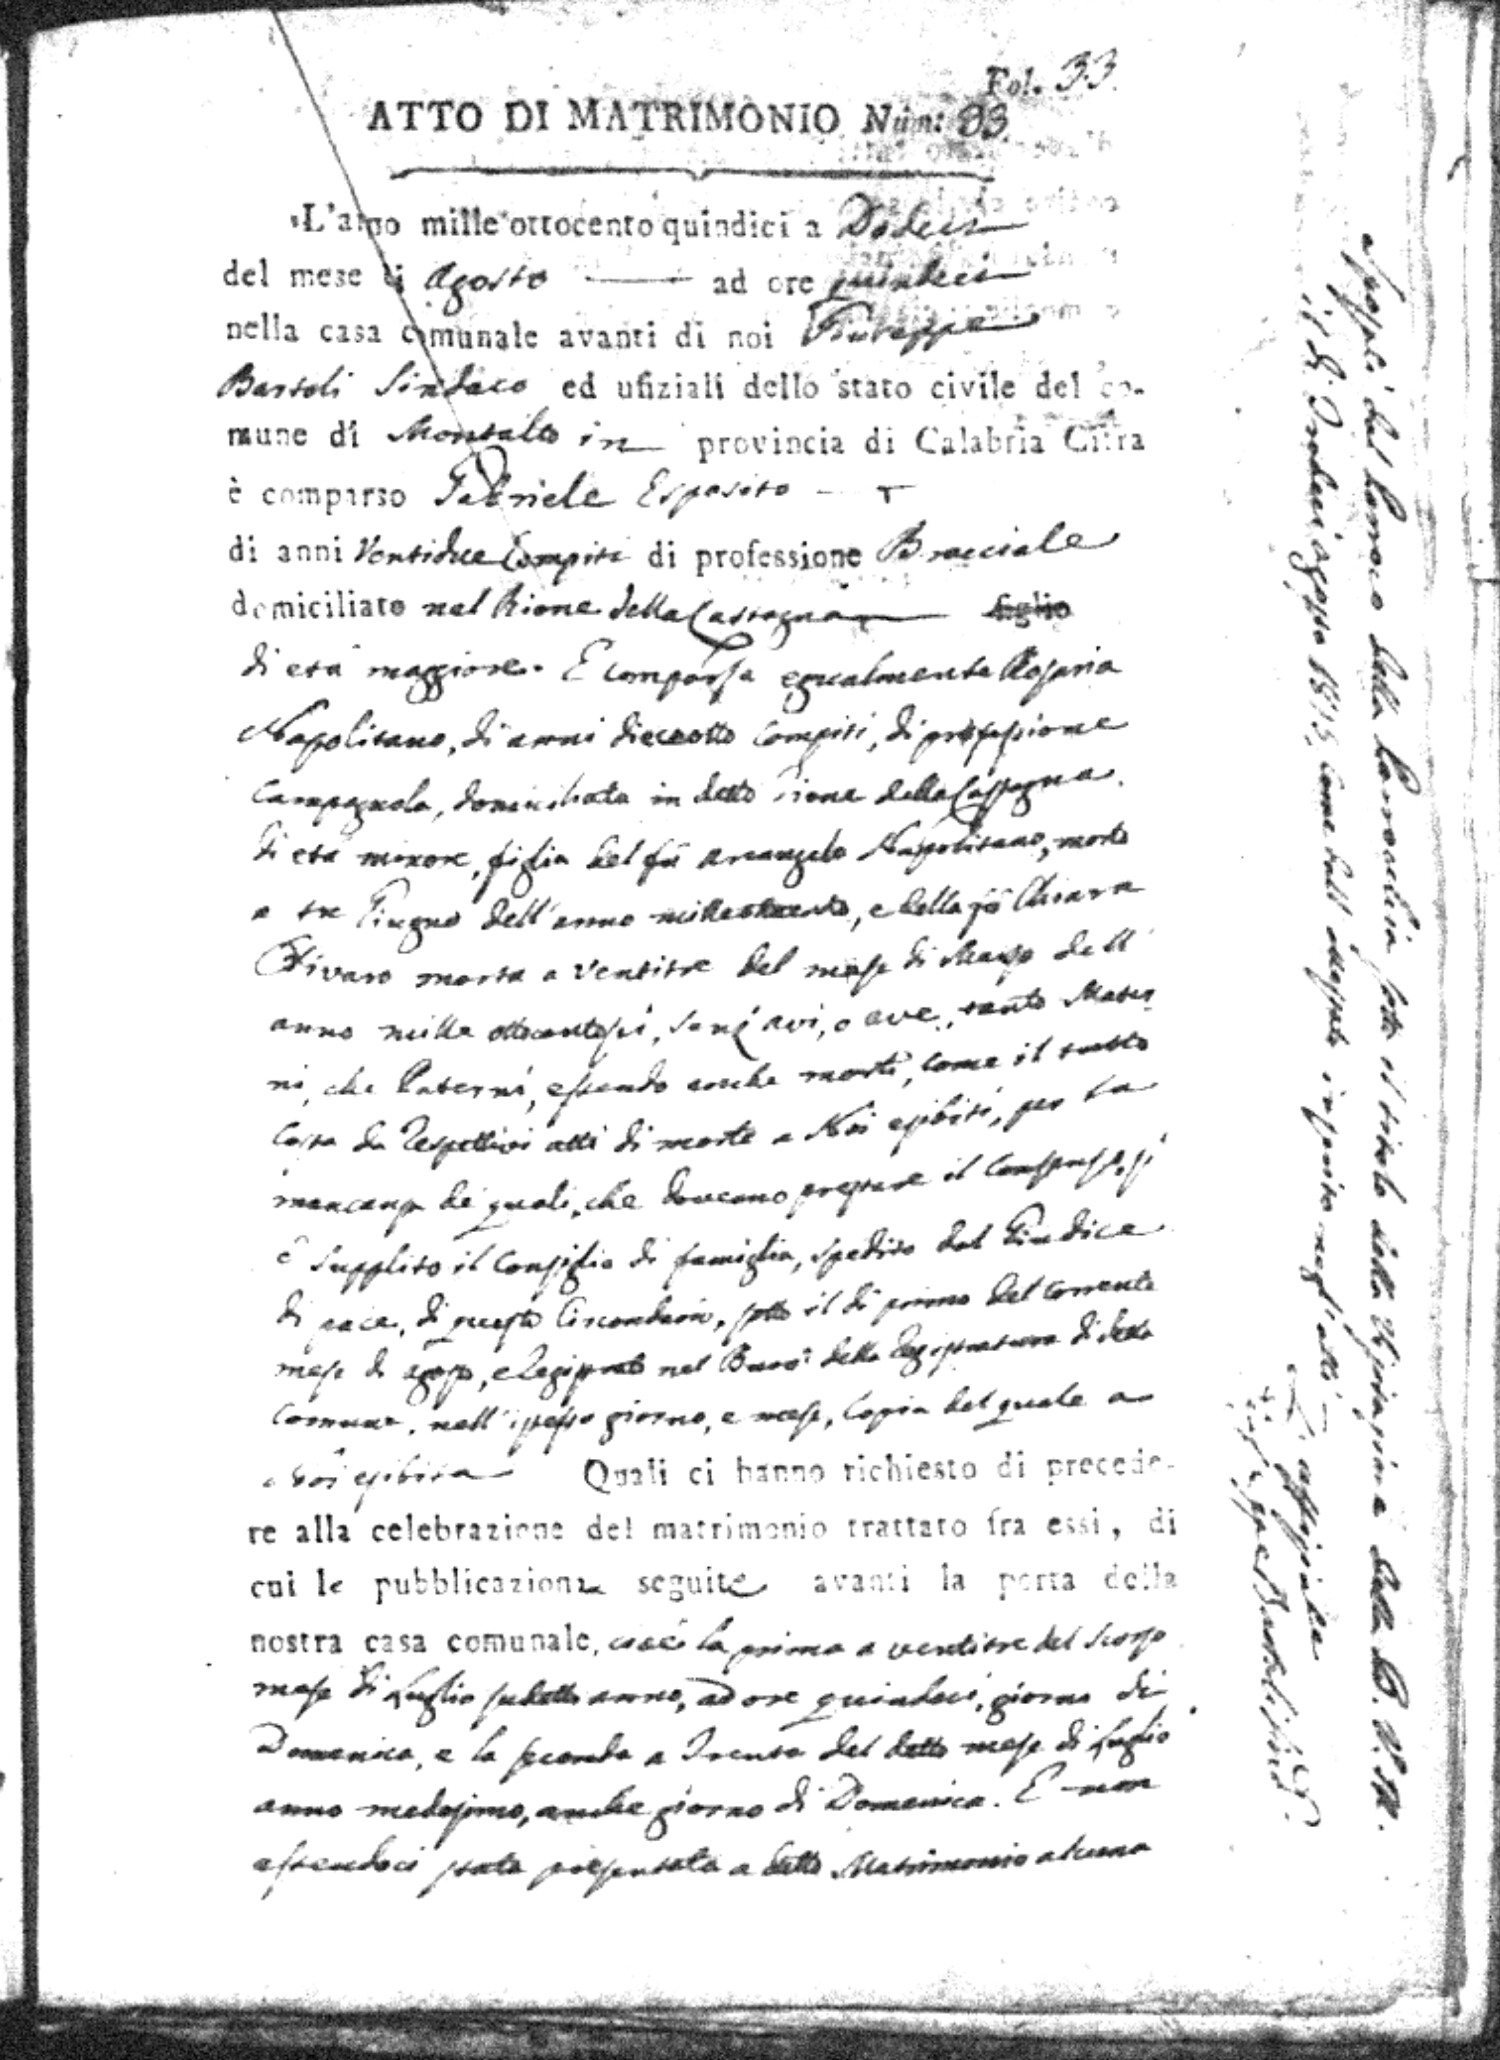 Fol. 33
ATTO DI MATRIMONIO Num: 33.
L'anno mille ottocento quindici a Dodeci
del mese di Agosto ad ore quindeci
nella casa comunale avanti di noi Giuseppe
Bartoli Sindaco ed ufiziali dello stato civile del co-
mune di Montalto in provincia di Calabria Citra
è comparso Gabriele Esposito
di anni Ventidue Compiti di professione Bracciale
domiciliato nel Rione della Castagna figlio
di età maggiore. E comparsa egualmente Rosaria
Napolitano, di anni dieceotto compiti, di professione
Campagnola, domiciliata in detto rione della Castagna.
di età minore, figlia del fù Arcangelo Napolitano, morto
a tre Giugno dell'anno milleottocento, e della fù Chiara
morta a ventitre del mese di Marzo dell'
anno mille ottocentosei, senz'avi, o ave, tanto Mater-
ni, che Paterni, essendo anche morti, come il tutto
costa da respettivi atti di morte a Noi esibiti, per la
mancanza de' quali, che doveano prestare il consenso, si
è supplito il Consiglio di famiglia, spedito dal Giudice
di pace, di questo Circondario, sotto il dì primo del corrente
mese di agosto, e registrato nel Burò della registratura di detto
Comune, nell'istesso giorno, e mese, Copia del quale a
Noi esibita Quali ci hanno richiesto di precede-
re alla celebrazione del matrimonio trattato fra essi, di
cui le pubblicazioni seguite avanti la porta della
nostra casa comunale, cioè la prima a ventitre del scorso
mese di Luglio sudetto anno, ad ore quindeci, giorno di
Domenica, e la seconda a Trenta del detto mese di Luglio
anno medesimo, anche giorno di Domenica. E non
essendoci stata presentata a detto Matrimonio alcuna
dal Parroco della Parrocchia sotto il titolo della Visitazione della B. V. M.
il dì Tredeci agosto 1815, come dall' attestato inserito negl'atti
L'uffiziale
Giuseppe Bartoli Sind.º